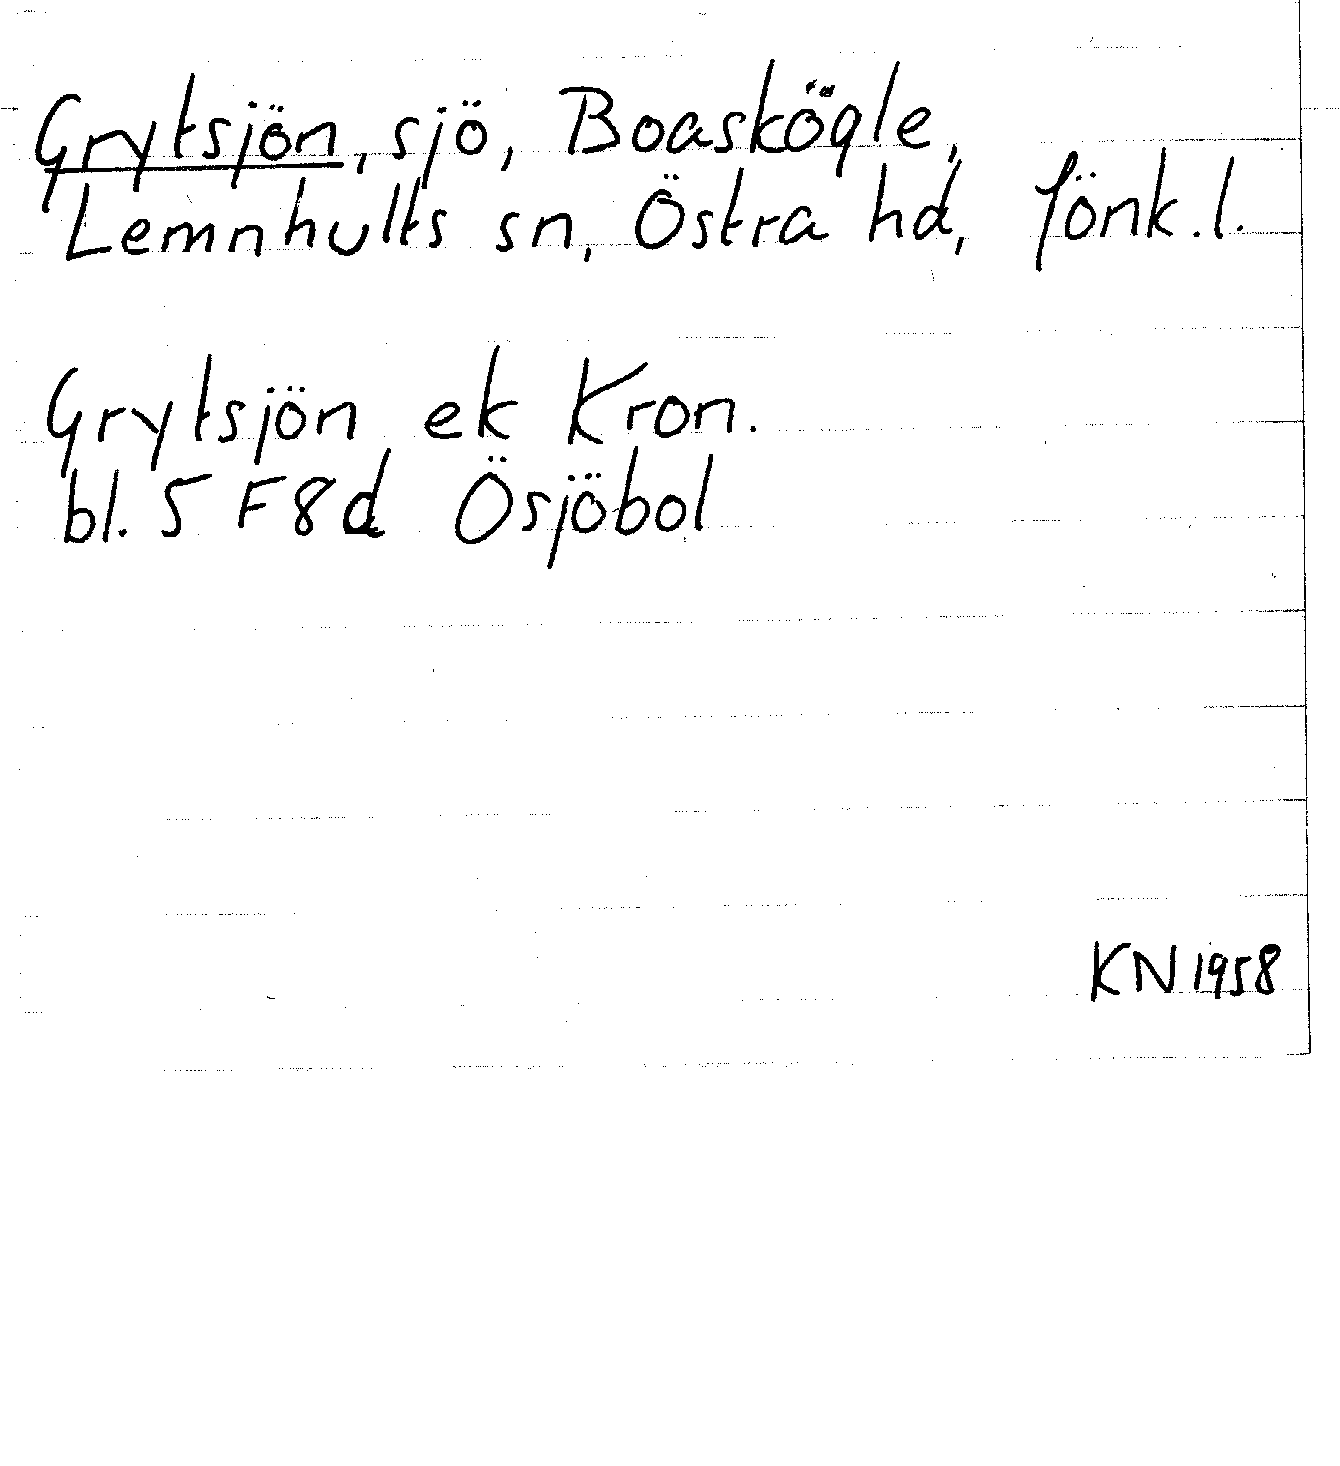 Grytsjön, sjö, Boaskögle,
Lemnhults sn, Östra hd, Jönk.l.
Grytsjön ek Kron.
bl. 5 F 8 d Ösjöbol
KN 1958